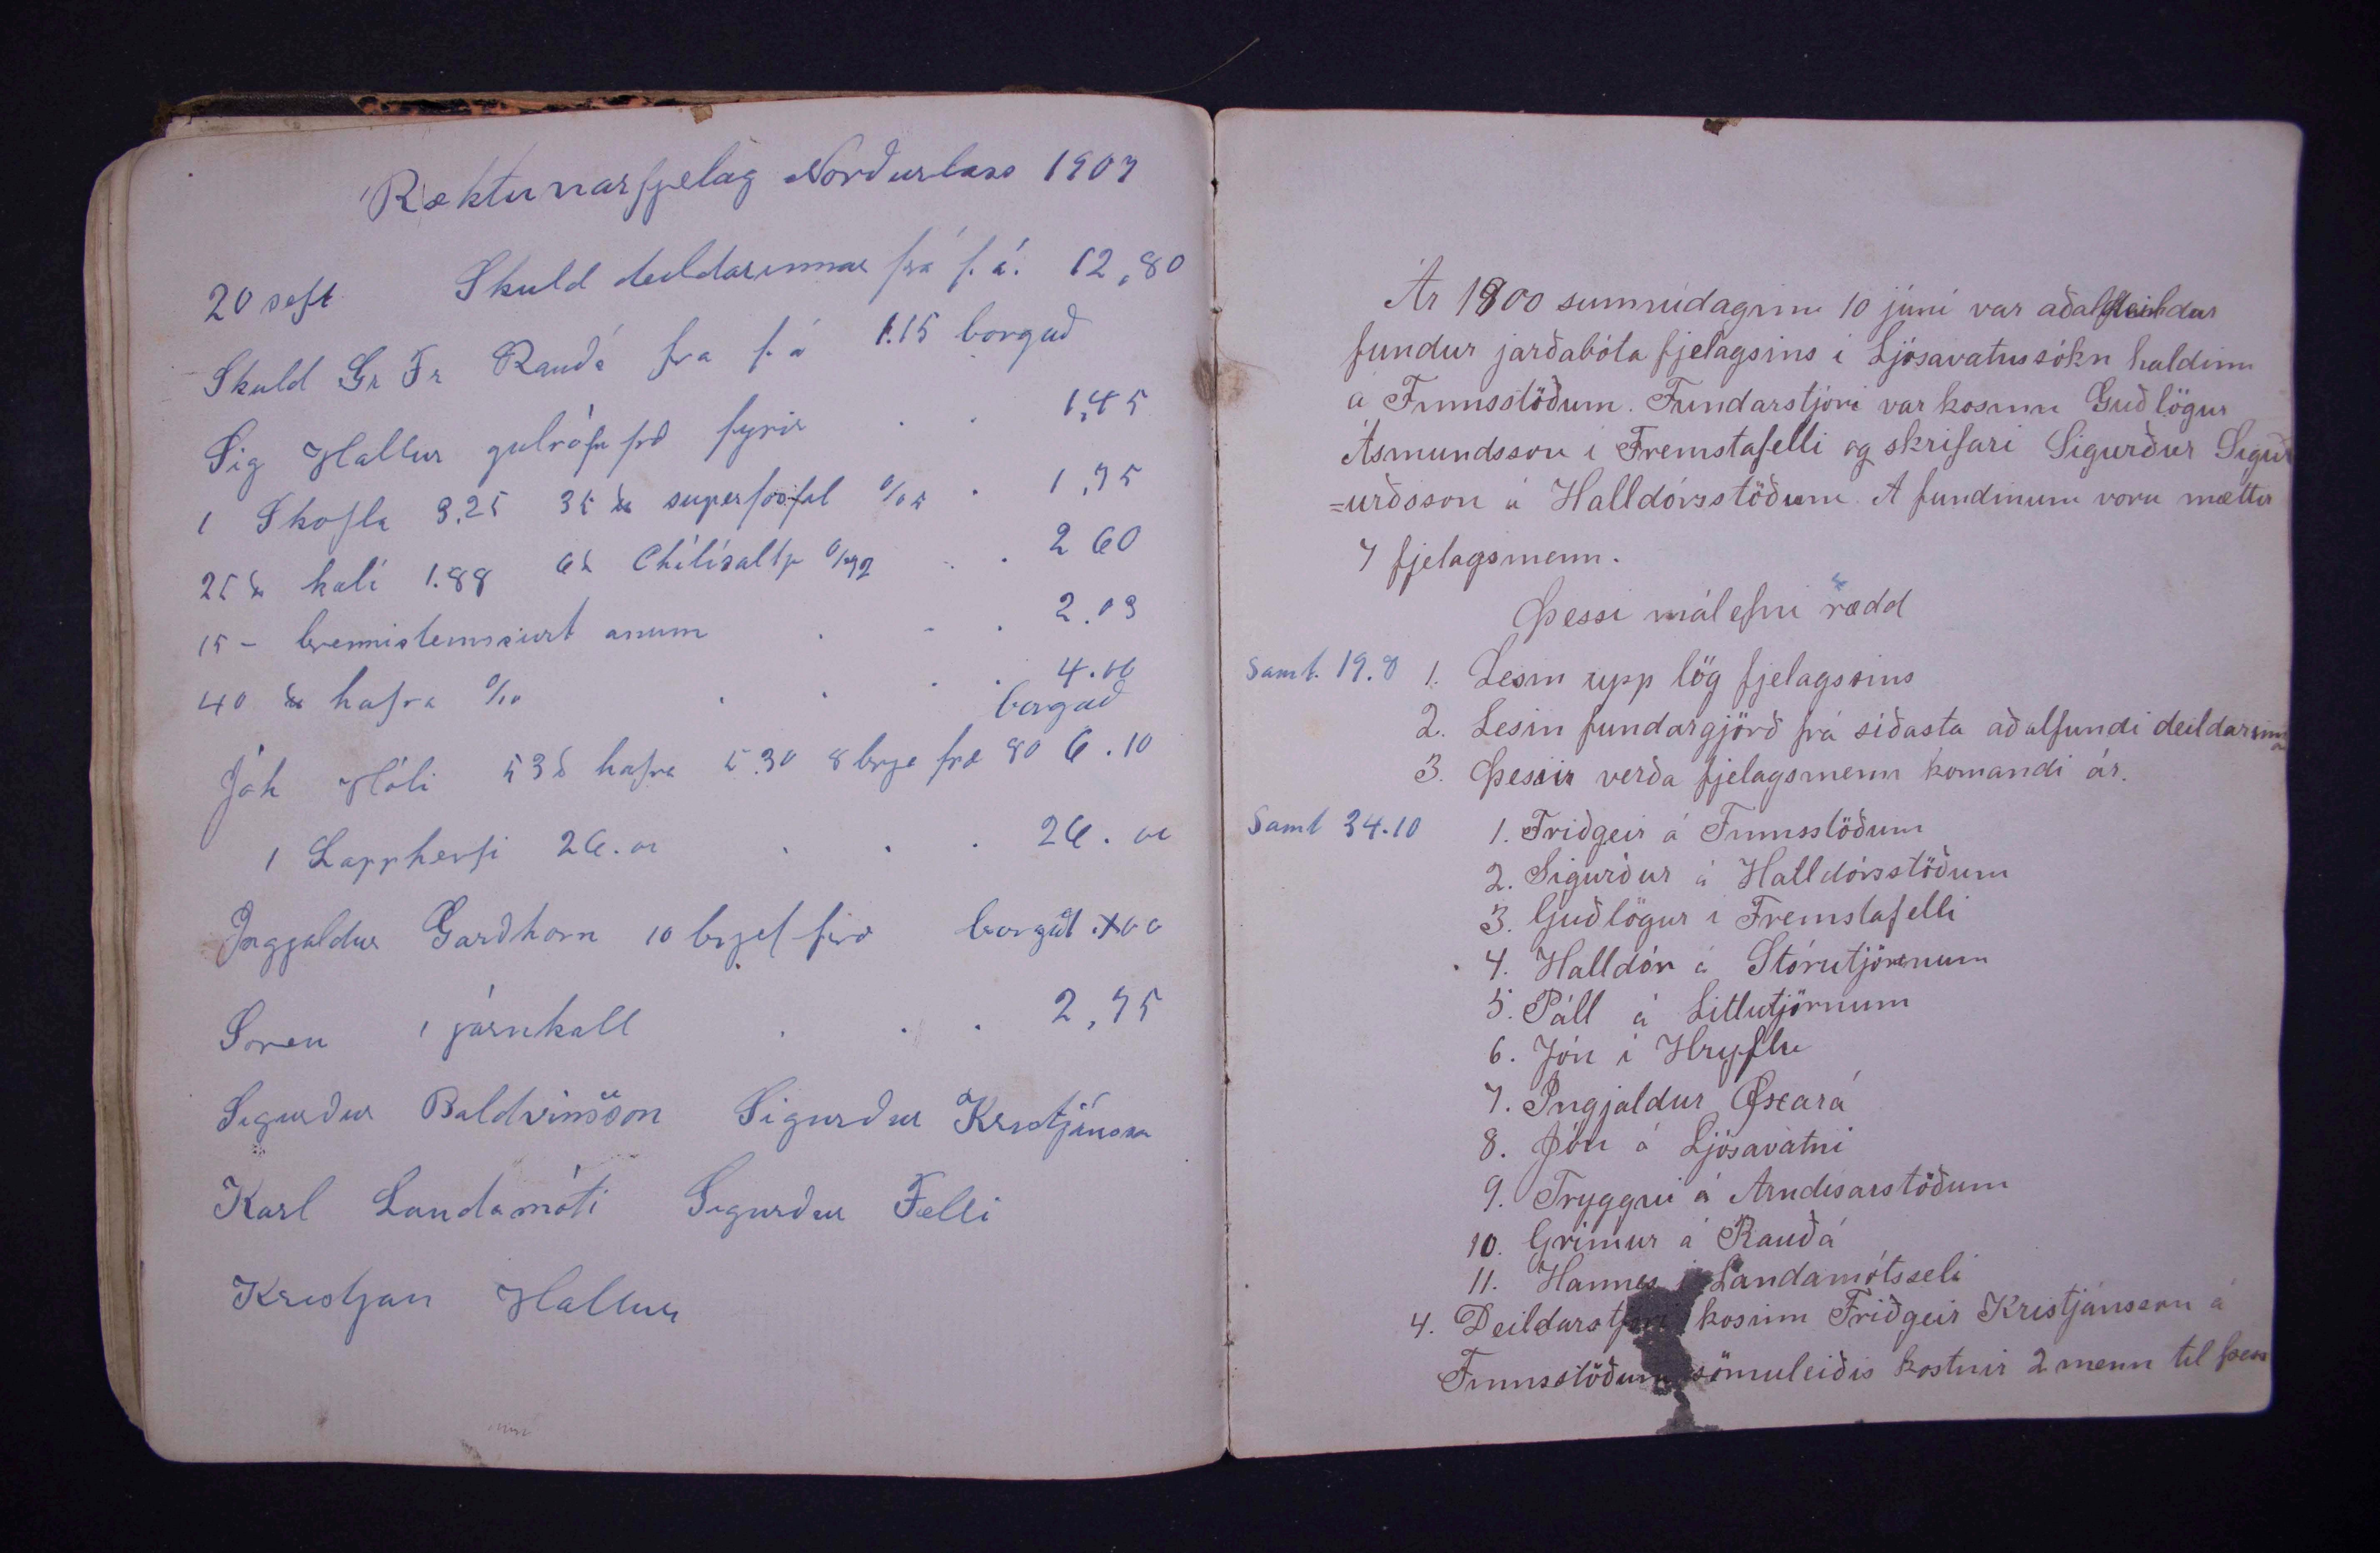 Ræktunarfjelag Norðurlans 1907
20 sept Skuld deildarinnar frá f. á. 12,80
Skuld Gr Fr Rauðá fra f. á 1.15 borgað
Sig Hallur gulrófu fræ fyrir . . 1,45
1 Skofla 3.25 35 superfosfat . 1,75
25 kali 1.88 Chilisaltp . . 2 60
15 - brennisteinssúrt . - . 2.03
40 hafra . . . . 4.00
borgað
Jóh Hóli 53 hafra 5.30 8 fræ 80 6.10
1 Lappherfi 26.00 . . . 26.00
Ingjaldur Garðhorn 10 borgað
Soren 1 járnkall . . . 2,75
Sigurður Baldvinsson Sigurður Kristjánsson
Karl Landamóti Sigurður Felli
Kristjan Hallur
Ár 1900 sunnudaginn 10 júní var aðal deildar
fundur jarðabóta fjelagsins í Ljósavatnssókn haldinn
á Finnsstöðum. Fundarstjóri var kosinn Guðlögur
Ásmundsson í Fremstafelli og skrifari Sigurður Sigur
=urðsson á Halldórsstöðum. A fundinum voru mættir
7 fjelagsmenn.
Þessi málefni rædd
Samt. 19.8 1. Lesin upp lög fjelagsins
2. Lesin fundargjörð frá síðasta aðalfundi deildarinnar
3. Þessir verða fjelagsmenn komandi ár.
Samt 34.10 1. Friðgeir á Finnsstöðum
2. Sigurður á Halldórsstöðum
3. Guðlögur í Fremstafelli
4. Halldór á Stórutjörnum
5. Páll á Litlutjörnum
6. Jón í Hryflu
7. Ingjaldur Öxará
8. Jón á Ljósavatni
9. Tryggvi á Arndísarstöðum
10. Grímur á Rauðá
11. Hannes í Landamótsseli
4. Deildarstjóri kosinn Friðgeir Kristjánsson á
Finnsstöðum sömuleiðis kostnir 2 menn til þess